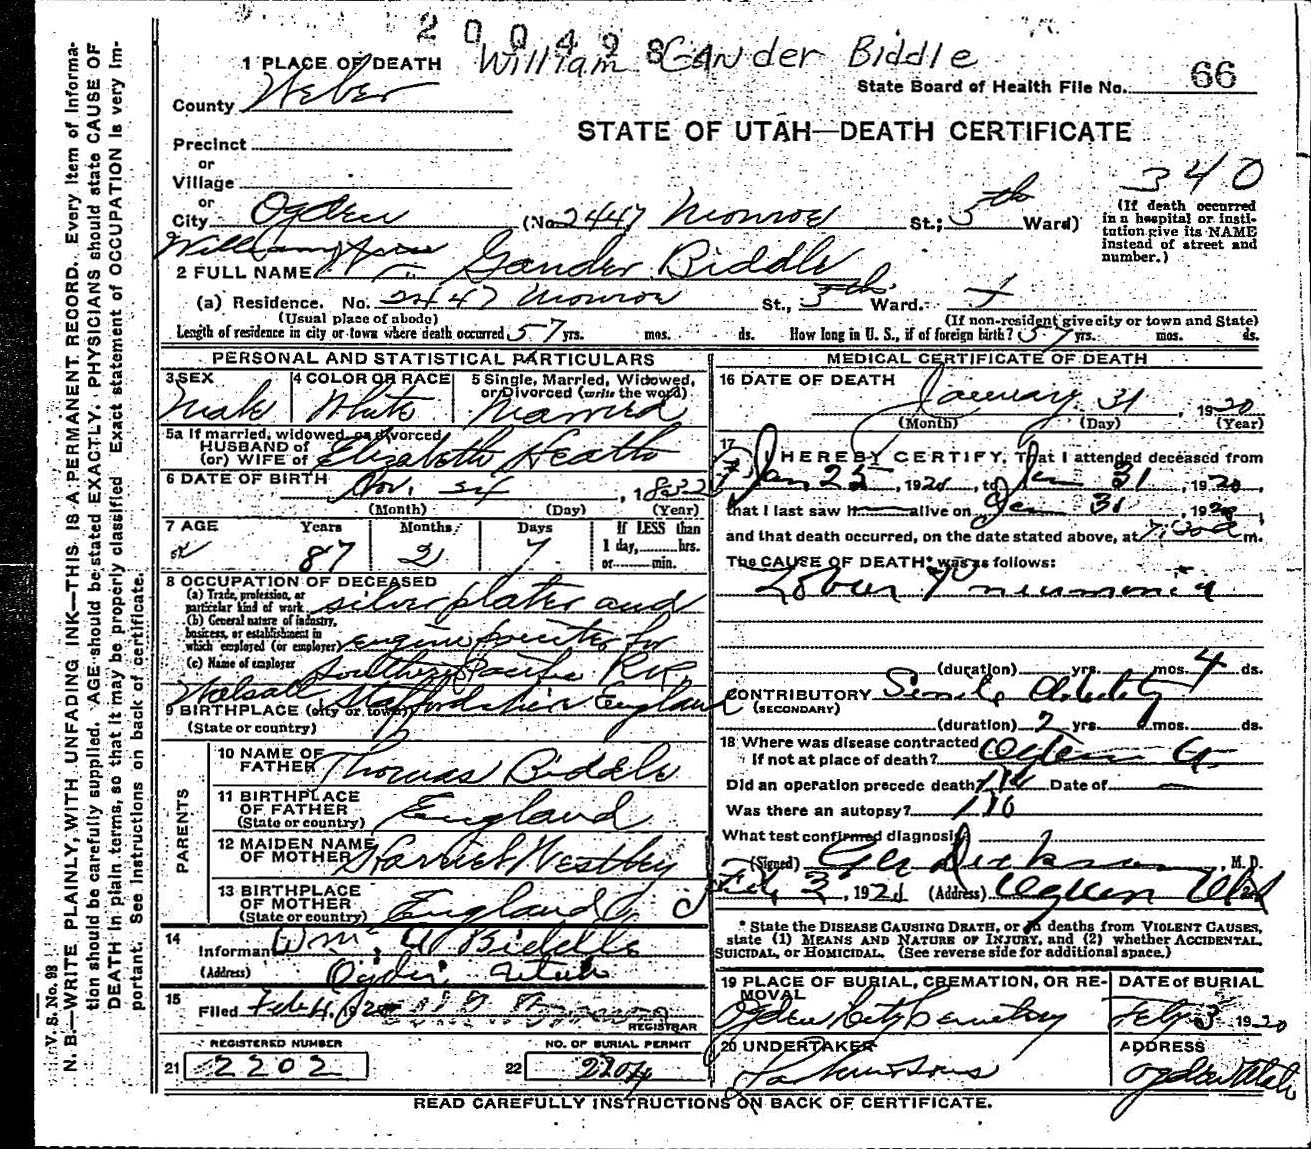 2004984
William Gander Biddle
1 PLACE OF DEATH
County Weber
State Board of Health File No. 66
STATE OF UTAH—DEATH CERTIFICATE
Precinct
or
Village
or
City Ogden (No. 2447 Monroe St.; 5th Ward)
340
(If death occurred in a hospital or institution give its NAME instead of street and number.)
William
2 FULL NAME Gander Biddle
(a) Residence. No. 2447 Monroe St., 5th Ward.
(Usual place of abode) (If non-resident give city or town and State)
Length of residence in city or town where death occurred 57 yrs. mos. ds. How long in U. S., if of foreign birth? 57 yrs. mos. ds.
PERSONAL AND STATISTICAL PARTICULARS
3 SEX Male
4 COLOR OR RACE White
5 Single, Married, Widowed, or Divorced (write the word) Married
5a If married, widowed, or divorced
HUSBAND of
(or) WIFE of Elizabeth Heath
6 DATE OF BIRTH Nov. 24, 1832
(Month) (Day) (Year)
7 AGE Years 87 Months 2 Days 7 If LESS than 1 day, hrs. or min.
8 OCCUPATION OF DECEASED
(a) Trade, profession, or particular kind of work silver plater and
(b) General nature of industry, business, or establishment in which employed (or employer) engine for
(c) Name of employer Southern Pacific R.R.
Walsall Staffordshire England
9 BIRTHPLACE (city or town)
(State or country)
PARENTS
10 NAME OF FATHER Thomas Biddle
11 BIRTHPLACE OF FATHER (State or country) England
12 MAIDEN NAME OF MOTHER Harriet Westbey
13 BIRTHPLACE OF MOTHER (State or country) England
14 Informant Wm. Biddle
(Address) Ogden, Utah
15 Filed Feb 4, 1920
REGISTRAR
REGISTERED NUMBER
21 2202
NO. OF BURIAL PERMIT
22 2204
MEDICAL CERTIFICATE OF DEATH
16 DATE OF DEATH
January 31, 1920
(Month) (Day) (Year)
17
I HEREBY CERTIFY, That I attended deceased from
Jan 25, 1920, to Jan 31, 1920,
that I last saw h alive on Jan 31, 1920
and that death occurred, on the date stated above, at m.
The CAUSE OF DEATH* was as follows:
Lobar Pneumonia
(duration) yrs. mos. 4 ds.
CONTRIBUTORY Senile debility
(SECONDARY)
(duration) 2 yrs. mos. ds.
18 Where was disease contracted
If not at place of death? Ogden
Did an operation precede death? No Date of
Was there an autopsy? No
What test confirmed diagnosis
(Signed) Dickson, M. D.
Feb 3, 1920 (Address) Ogden Utah
* State the DISEASE CAUSING DEATH, or in deaths from VIOLENT CAUSES, state (1) MEANS AND NATURE OF INJURY, and (2) whether ACCIDENTAL, SUICIDAL, or HOMICIDAL. (See reverse side for additional space.)
19 PLACE OF BURIAL, CREMATION, OR REMOVAL
Ogden City Cemetery
DATE of BURIAL
Feb 3 1920
20 UNDERTAKER
Larkin & Sons
ADDRESS
Ogden Utah
READ CAREFULLY INSTRUCTIONS ON BACK OF CERTIFICATE.
V. S. No. 98
N. B.—WRITE PLAINLY, WITH UNFADING INK—THIS IS A PERMANENT RECORD. Every item of information should be carefully supplied. AGE should be stated EXACTLY. PHYSICIANS should state CAUSE OF DEATH in plain terms, so that it may be properly classified. Exact statement of OCCUPATION is very important. See instructions on back of certificate.